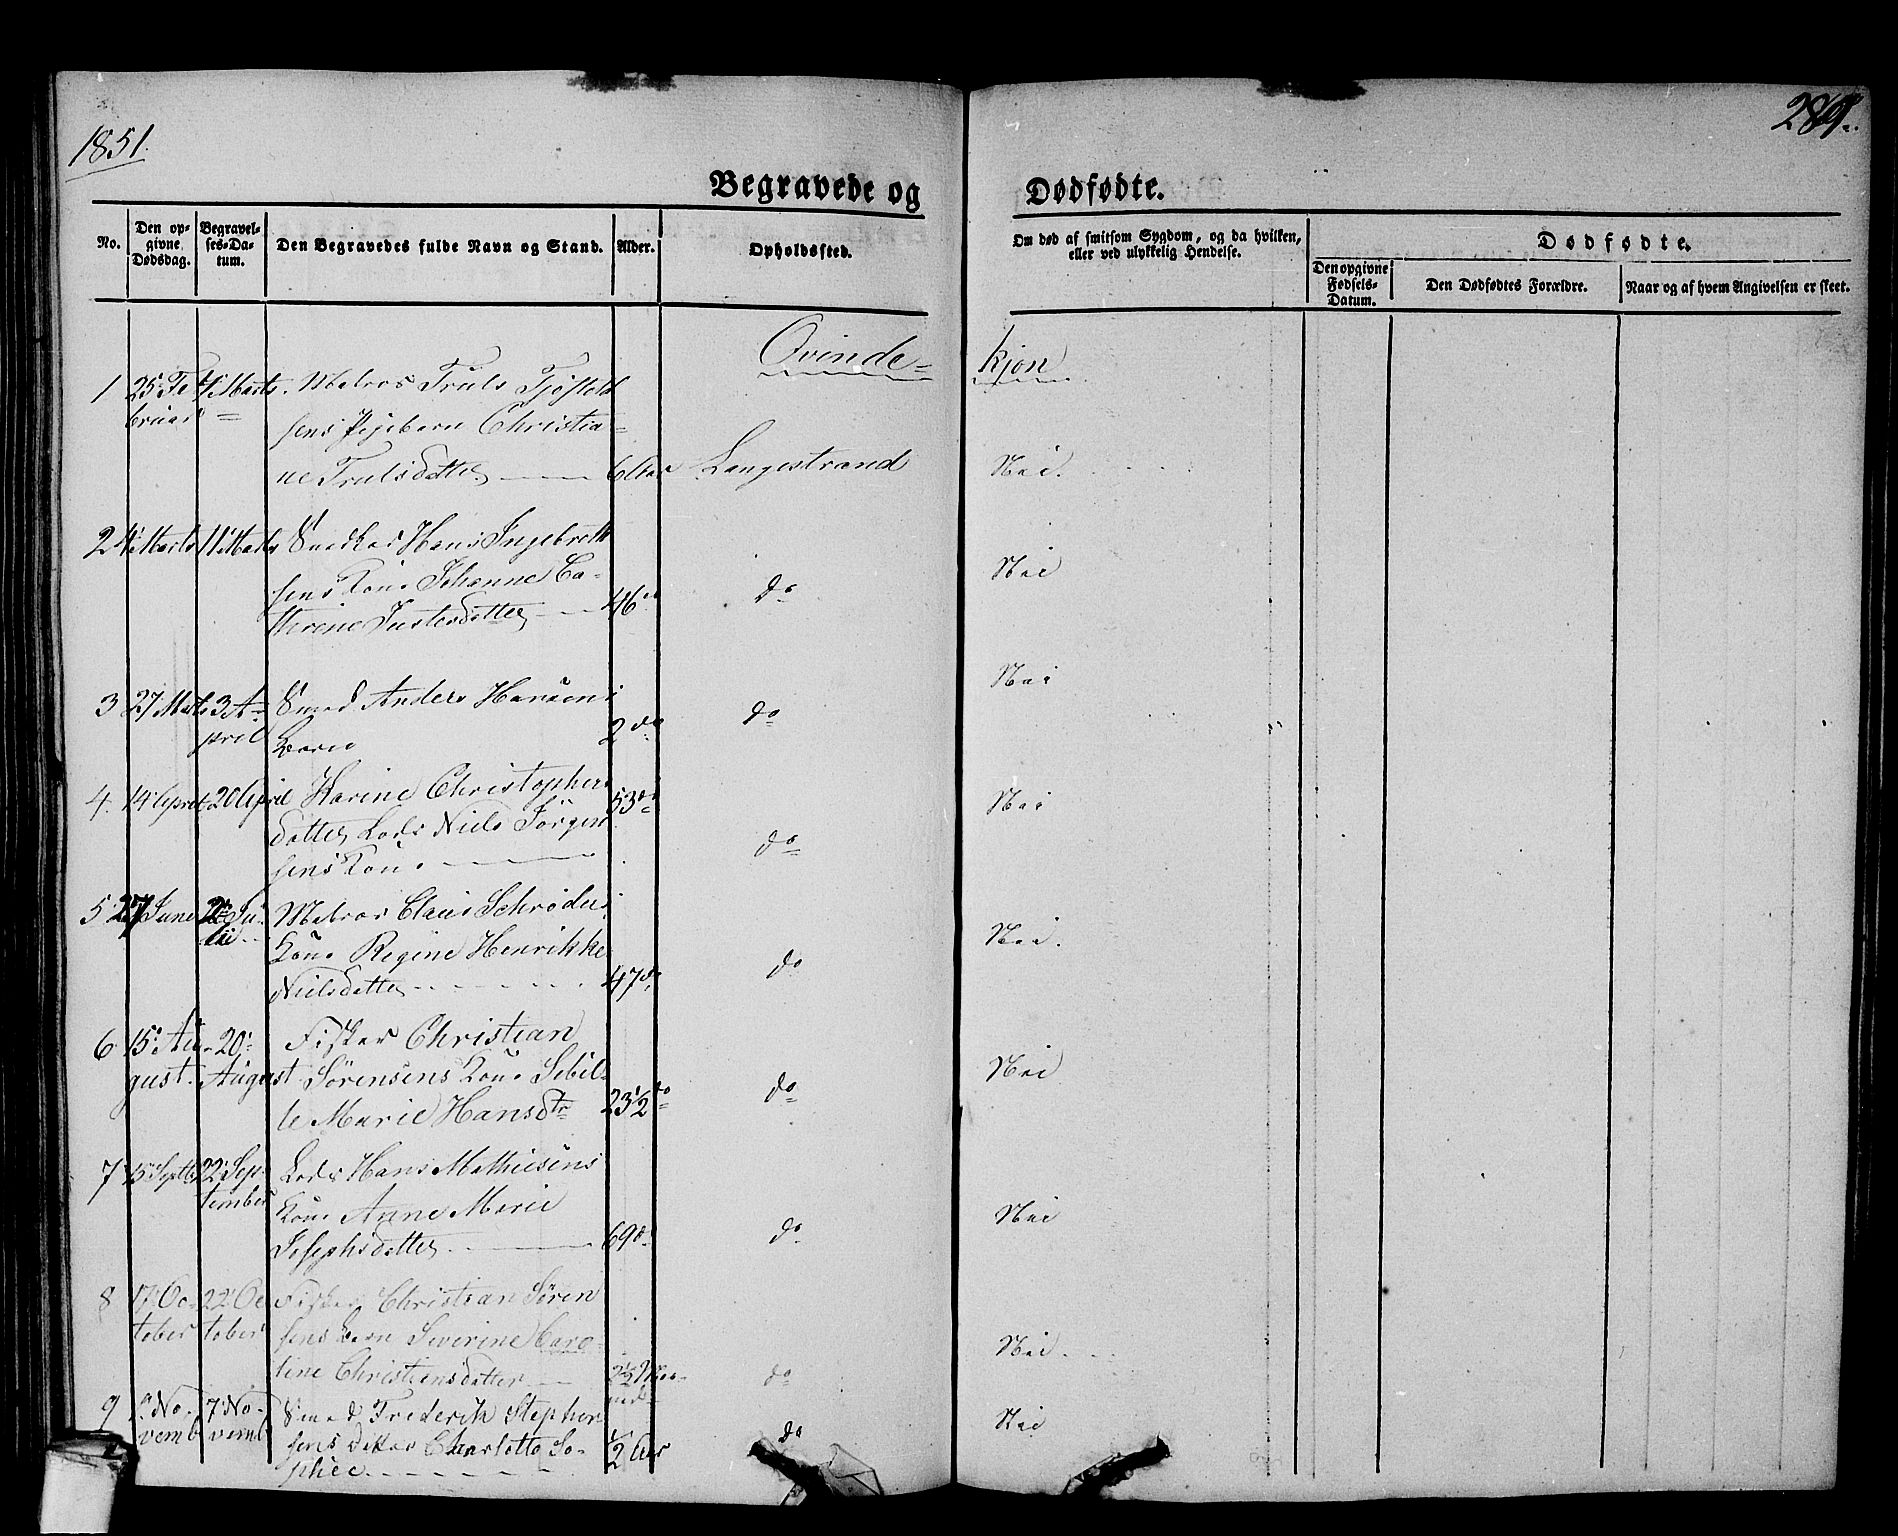 1851.
289.
Begravede og
Dødfødte.
No.
Den op-
givne
Dødsdag.
Begravel-
ses-Da-
tum.
Den Begravedes fulde Navn og Stand.
Alder.
Opholdssted.
Om død af smitsom Sygdom, og da hvilken,
eller ved ulykkelig Hendelse.
Dødfødte.
Den opgivne
Fødsels-
Datum.
Den Dødfødtes Forældre.
Naar og af hvem Angivelsen er skeet.
Qvinde=
kjøn
1 25 Fe- 4 Marts. Matros Truls Tjøstold
bruar =
sens Pigebarn Christia=
ne Trulsdatter 6 Aar Langestrand Nei.
2 4 Marts 11 Marts Snedker Hans Ingebreth
sens Kone Johanne Ca-
thrine Justesdatter 46 do do Nei
3 27 Marts 3 A= Smed Anders Hansens
pril Barn 2 do do Nei
4. 14 April 20 April Karine Christophers 53 do
datter Lods Niels Jörgen
sens Kone do Nei
5 27 June 2 Ju- Matros Claus Schrøders
lii Kone Regine Henrikke
Nielsdatter 47 do do Nei.
6 15 Au- 20 Fisker Christian
gust. August Sörensens Kone Sibil-
le Marie Hansdtr 23 1/2 do do Nei
7 15 Septb 22 Sep- Lods Hans Mathisens
tember Kone Anne Marie
Josephsdatter 69 do do Nei
8 17 Oc- 22 Oc Fisker Christian Sören
tober tober sens Barn Severine Caro-
line Christiansdatter 2 1/2 Maa-
ned do Nei.
9 1 No- 7 No- Smed Frederik Stephen
vemb vemb sens Datter Charlotte So-
phie 1/2 Aar do Nei